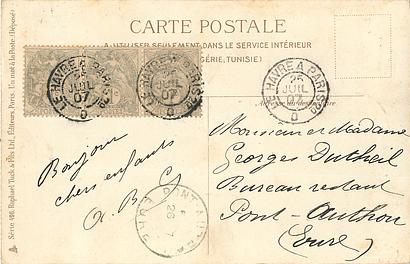 CARTE POSTALE
A UTILISER SEULEMENT DANS LE SERVICE INTÉRIEUR
ÉRIE, TUNISIE)
LE HAVRE A PARIS
25
JUIL
07
LE HAVRE A PARIS
25
JUIL
07
LE HAVRE A PARIS
25
JUIL
07
Bonjour
chers enfants
A. B
EURE
26 7
Monsieur et Madame
Georges Dutheil
Bureau restant
Pont-Authou
(Eure)
Série 496. Raphael Tuck & Fils, Ltd, Éditeurs, Paris. Un mot à la Poste (Déposé)